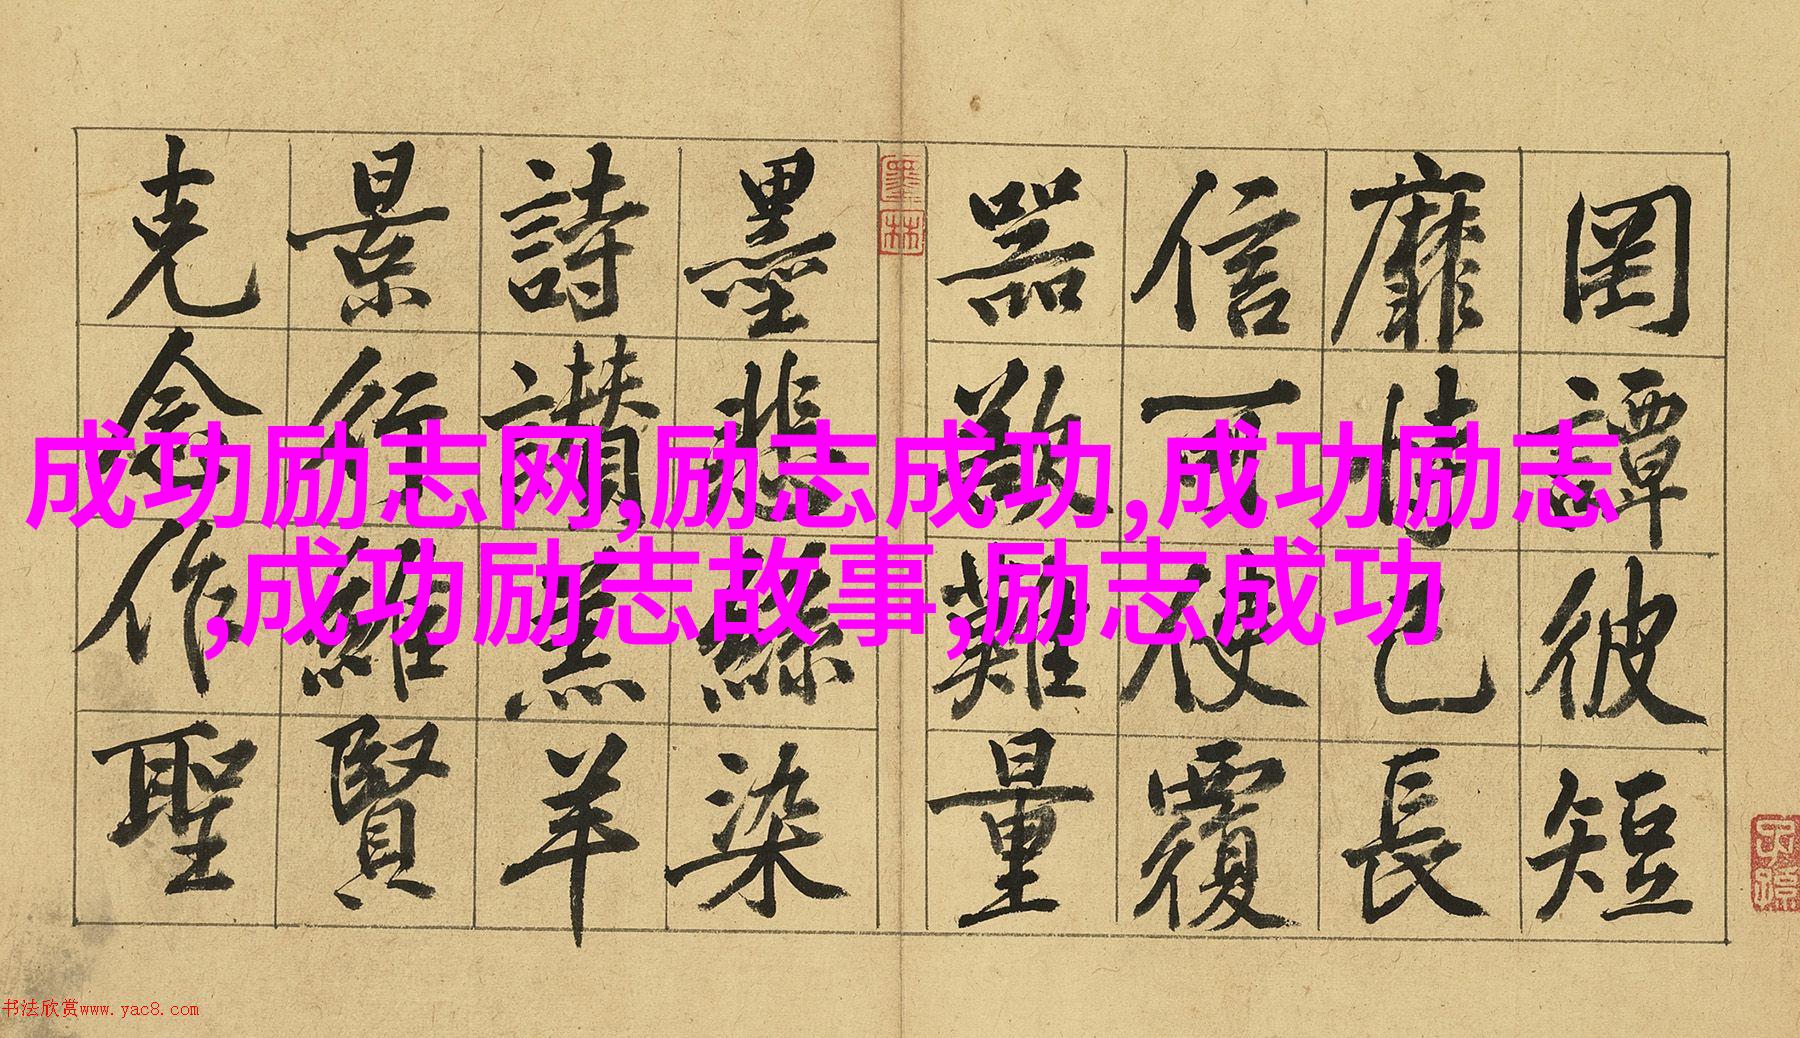 罔譚彼短
靡恃己長
信可使覆
器欲難量
墨悲絲染
詩讚羔羊
景行維賢
克念作聖
成功励志网,励志成功,成功励志
,成功励志故事,励志成功
墨林
书法欣赏www.yac8.com